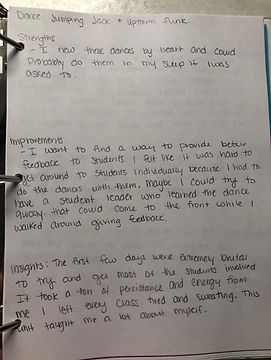 Dance Jumping Jack + Uptown Funk
Strengths
- I new these dances by heart and could
probably do them in my sleep if I was
asked to.
Improvements
- I want to find a way to provide better
feedback to students. I felt like it was hard to
get around to students individually because I had to
do the dances with them. Maybe I could try to
have a student leader who learned the dance
quickly that could come to the front while I
walked around giving feedback.
Insights: The first few days were extremely brutal
to try and get most of the students involved
It took a ton of persistance and energy from
me I left every class tired and sweating. This
unit taught me a lot about myself.